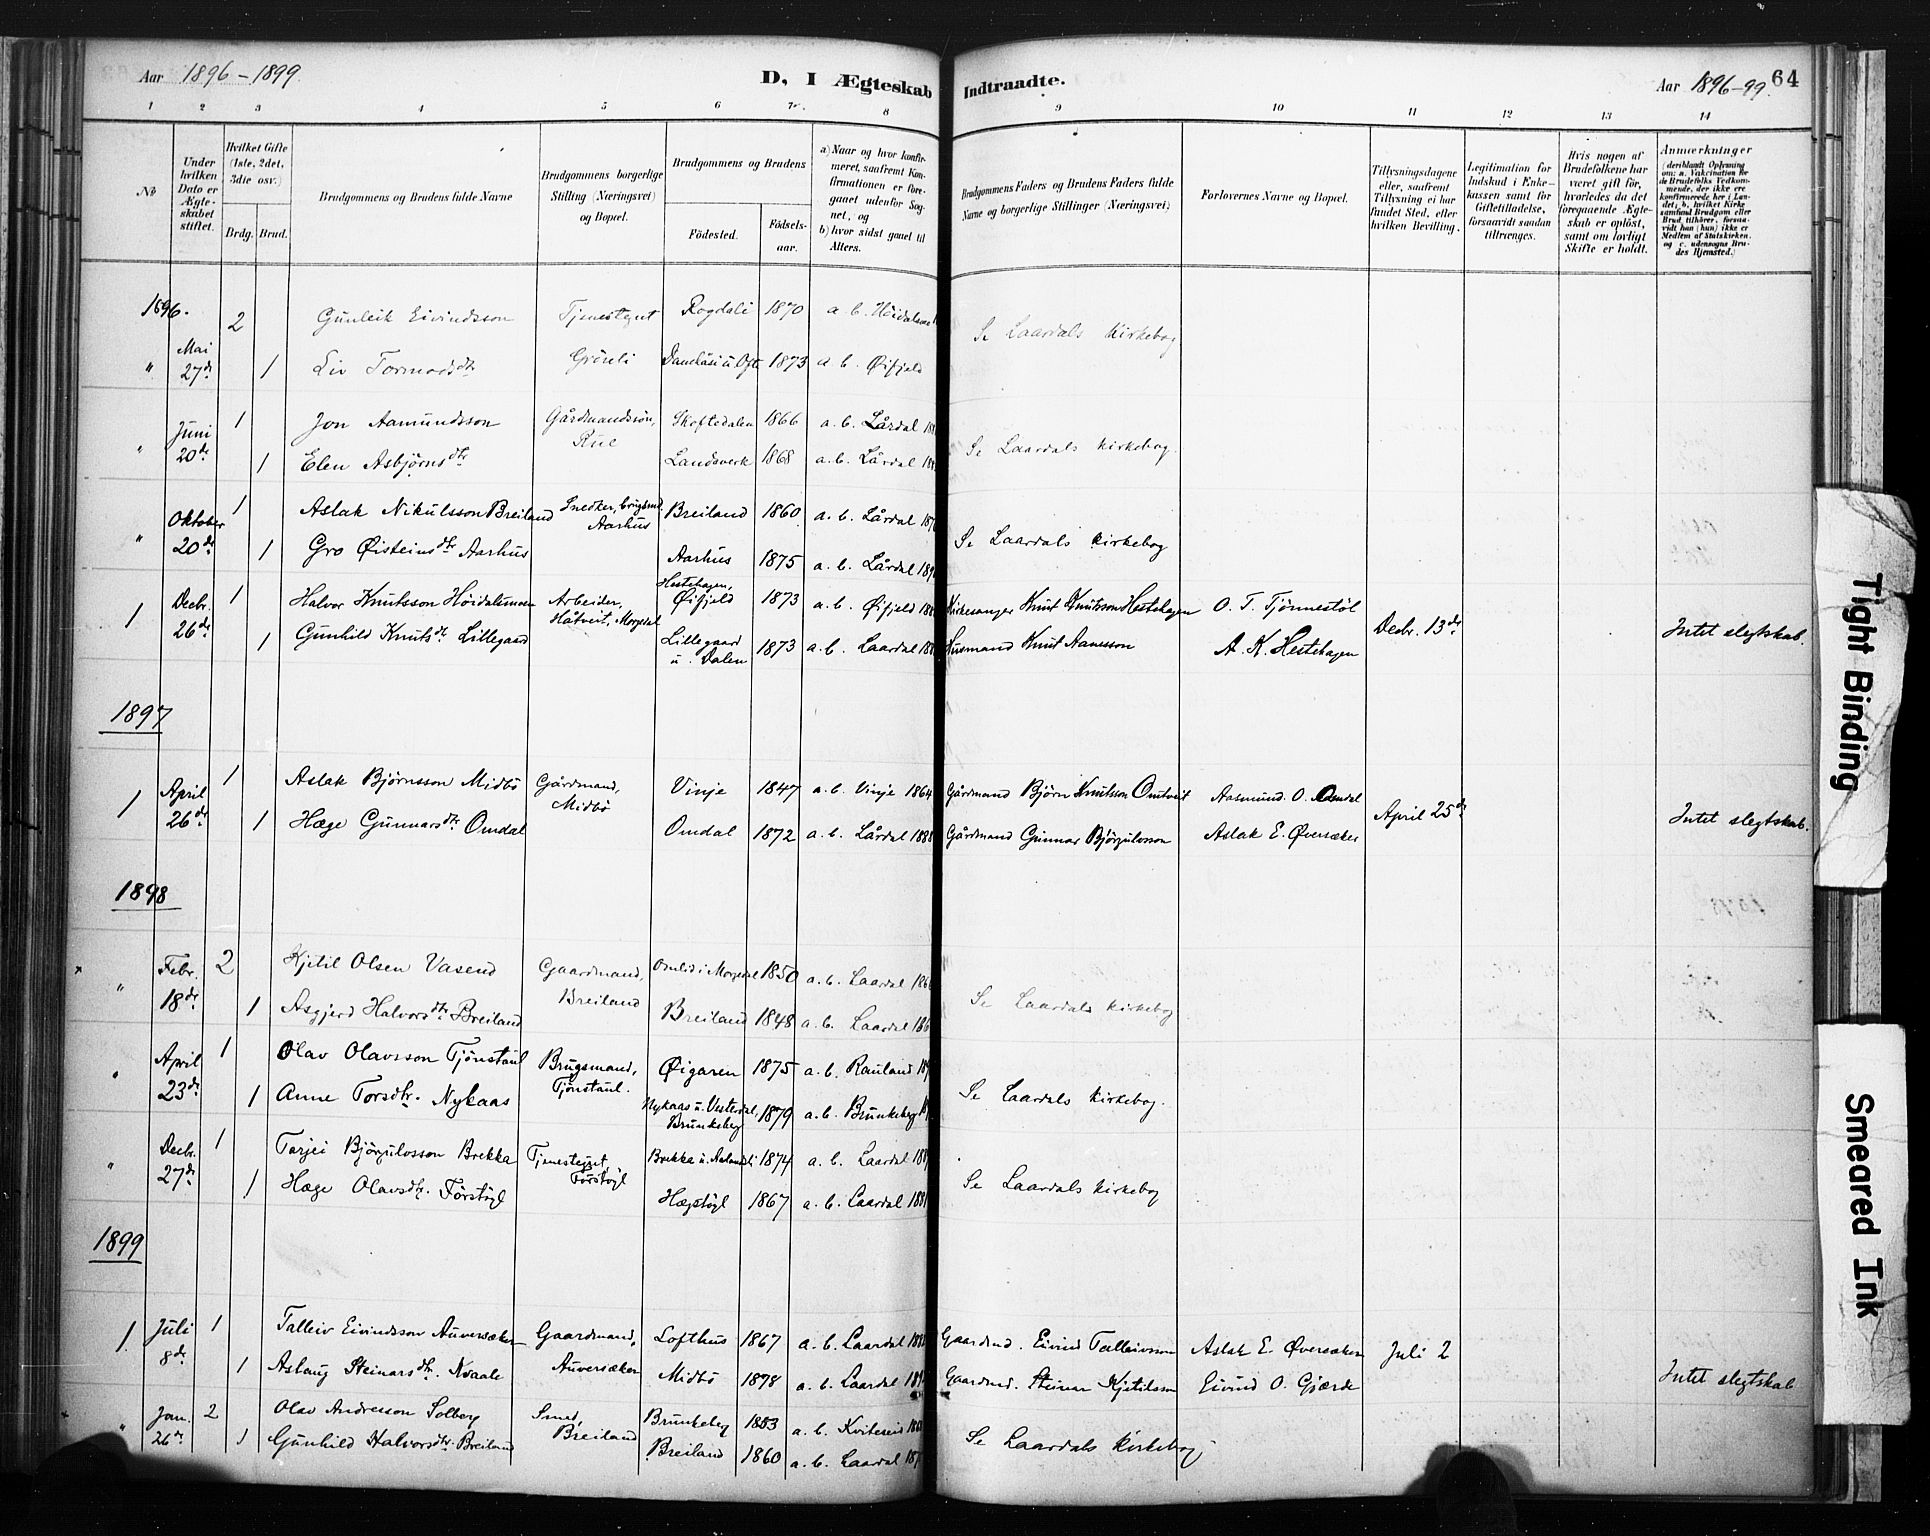 Aar 1896-1899.
D, I Ægteskab Indtraadte.
Aar 1896-99. 64
1 2 3 4 5 6 7 8 9 10 11 12 13 14
No
Under hvilken Dato er Ægteskabet stiftet.
Hvilket Gifte (1ste, 2det, 3die osv.)
Brdg. Brud.
Brudgommens og Brudens fulde Navne
Brudgommens borgerlige Stilling (Næringsvei) og Bopæl.
Brudgommens og Brudens
Fødested.
Fødselsaar.
a) Naar og hvor konfirmeret, saafremt Konfirmationen er foregaaet udenfor Sognet, og
b) hvor sidst gaaet til Alters.
Brudgommens Faders og Brudens Faders fulde Navne og borgerlige Stillinger (Næringsvei)
Forlovernes Navne og Bopæl.
Tillysningsdagene eller, saafremt Tillysning ei har fundet Sted, efter hvilken Bevilling.
Legitimation for Indskud i Enkekassen samt for Giftetilladelse, forsaavidt saadan tiltrænges.
Hvis nogen af Brudefolkene har været gift før, hvorledes da det foregaaende Ægteskab er opløst, samt om lovligt Skifte er holdt.
Anmærkninger
(deriblandt Oplysning om: a. Vakcination for de Brudefolks Vedkommende, der ikke ere konfirmerede her i Landet; b. hvilket Kirkesamfund Brudgom eller Brud tilhører, forsaavidt han (hun) ikke er Medlem af Statskirken, og c. udensogns Brudes Hjemsted.)
1896.
2 Gunleik Eivindsson Tjenestegut Rogdali 1870 a. b. Høidalsmo
" Mai 27de 1 Liv Tormodsdtr Grøseli 1873 a. b. Øifjeld
Se Laardals kirkebog
" Juni 20de 1 Jon Aamundsson Gårdmandssøn, Rue Skoftedalen 1866 a. b. Lårdal
1 Elen Asbjørnsdtr Landsverk 1868 a. b. Lårdal
Se Laardals kirkebog.
" Oktober 20de 1 Aslak Nikulsson Breiland Snedker, Aarhus Breiland 1860 a. b. Lårdal
1 Gro Øisteinsdtr Aarhus Aarhus 1875 a. b. Lårdal
Se Laardals kirkebog
1 Decbr. 26de 1 Halvor Knutsson Høidalsmoen Arbeider, Håtveit, Morgedal Hestehagen, Øifjeld 1873 a. b. Øifjeld Kirkesanger Knut Knutsson Hestehagen O. T. Tjønnestøl
1 Gunhild Knutsdtr Lillegaard Lillegaard u. Dalen 1873 a. b. Laardal Husmand Knut Aanesson A. K. Hestehagen
Decbr. 13de
Intet slegtskab.
1897
1 April 26de 1 Aslak Bjørnsson Midbø Gårdmand, Midbø Vinje 1847 a. b. Vinje 1864 Gårdmand Bjørn Knutsson Omtveit Aasmund. O. Omdal
1 Hæge Gunnarsdtr Omdal Omdal 1872 a. b. Lårdal 1888 Gårdmand Gunnar Bjørgulvsson Aslak E. Øversæker
April 25de
Intet slegtskab.
1898
" Febr. 18de 2 Kjetil Olsen Vasend Gaardmand, Breiland Omlid i Morgedal 1850 a. b. Laardal
1 Asgjerd Halvorsdtr Breiland Breiland 1848 a. b. Laardal
Se Laardals kirkebog
" April 23de 1 Olav Olavsson Tjønstaul Brugsmand, Tjønstaul. Øigaren 1875 a. b. Rauland
1 Anne Torsdtr. Nykaas Nykaas u. Vesterdal, Brunkeberg 1879 a. b. Brunkeberg
Se Laardals kirkebog.
" Decbr. 27de 1 Tarjei Bjørgulvsson Brekka Tjenestegut, Førstøyl 1874 a. b. Laardal
1 Hæge Olavsdtr. Førstøyl Hægstøyl 1867 a. b. Laardal
Se Laardals kirkebog
1899
1. Juli 8de 1 Talleiv Eivindsson Auversæker Gaardmand, Auversæker Lofthus 1867 a. b. Laardal Gaardmd. Eivind Talleivsson Aslak E. Øversæker
1 Aslaug Steinarsdtr. Nesaale Midbø 1878 a. b. Laardal Gaardmd. Steinar Kjetilsson Eivind O. Gjærde
Juli 2
Intet slegtskab
" Jan. 26de 2 Olav Andresson Solberg Smed, Breiland Brunkeberg 1853 a. b. Kviteseid
1 Gunhild Halvorsdtr. Breiland Breiland 1860 a. b. Laardal
Se Laardals kirkebog.
Tight Binding
Smeared Ink